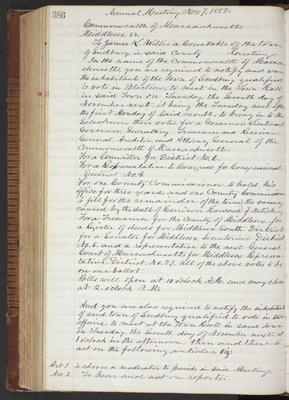 386
Annual Meeting Nov. 7, 1882.
Commonwealth of Massachusetts
Middlesex, ss.
To James L. Willis a Constable of the town
of Sudbury in said County Greeting.
In the name of the Commonwealth of Massa-
chusetts, you are required to notify and warn
the inhabitants of the Town of Sudbury qualified
to vote in Elections, to meet in the Town Hall
in said Town on Tuesday, the Seventh day of
November next, it being the Tuesday next after
the first Monday of said month, to bring in to the
Selectmen their votes for a Governor, Lieutenant
Governor, Secretary, Treasurer and Receiver
General, Auditor, and Attorney General of the
Commonwealth of Massachusetts.
For a Councillor for District No. 6.
For a Representative to Congress for Congressional
District No. 9.
For one County Commissioner to hold his
office for three years, and one County Commissioner
to fill for the remainder of the time, the vacancy
caused by the death of Harrison Harwood of Natick
For a Treasurer for the County of Middlesex, for
a Register of Deeds for Middlesex South District
for a Senator for Middlesex Senatorial District
No. 5. and a representative to the next General
Court of Massachusetts for Middlesex Represen-
tative District No. 27, all of the above votes to be
on one ballot
Polls will open at 10 o'clock A.M. and may close
at 2 o'clock P.M.
And you are also required to notify the inhabitants
of said town of Sudbury qualified to vote in town
affairs to meet at the Town Hall in said Town
on Tuesday, the Seventh day of November next at
1 o'clock in the afternoon, then and there to
act on the following articles Viz:
Art. 1. To choose a moderator to preside in said Meeting.
Art. 2. To hear and act on reports.